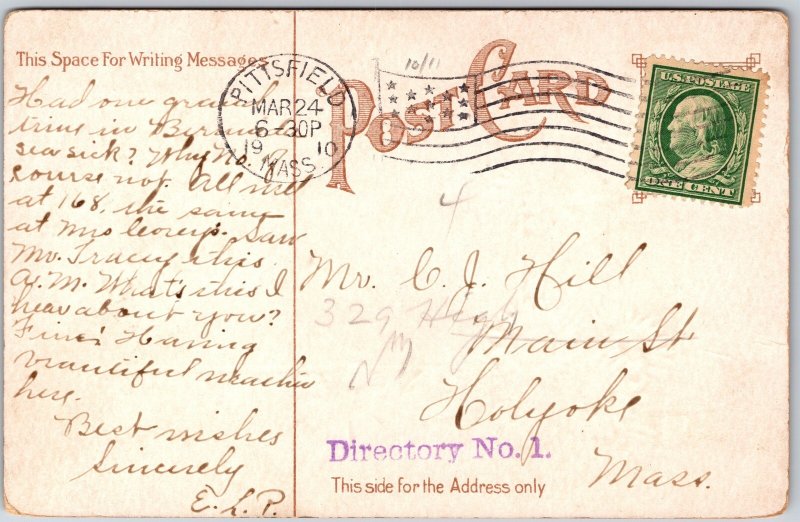 This Space For Writing Messages
Had one grand
time in Bermuda
sea sick? Why No, of
course not. All met
at 168, the same
at Mrs Coreys. Saw
Mr. Tracy this
A.M. What's this I
hear about you?
Fine! Having
beautiful weather
here.
Best wishes
Sincerely
E. L. P.
POST CARD
10/11
PITTSFIELD
MAR 24
6-30P
1910
MASS.
U.S. POSTAGE
ONE CENT
4
Mr. C. J. Hill
329 High
Main St
Holyoke
Mass.
Directory No. 1.
This side for the Address only